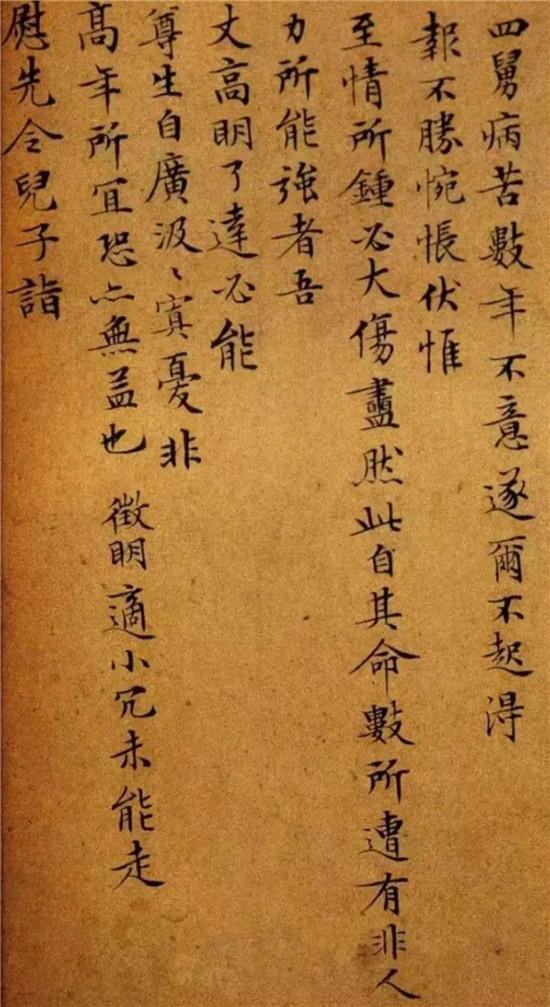 四舅病苦數年不意遂爾不起得
報不勝惋悵伏惟
至情所鍾必大傷盡然此自其命數所遭有非人
力所能強者吾
丈高明了達必能
尊生自廣汲〻寘憂非
高年所宜恐亠無益也 徵明適小冗未能走
慰先令兒子詣